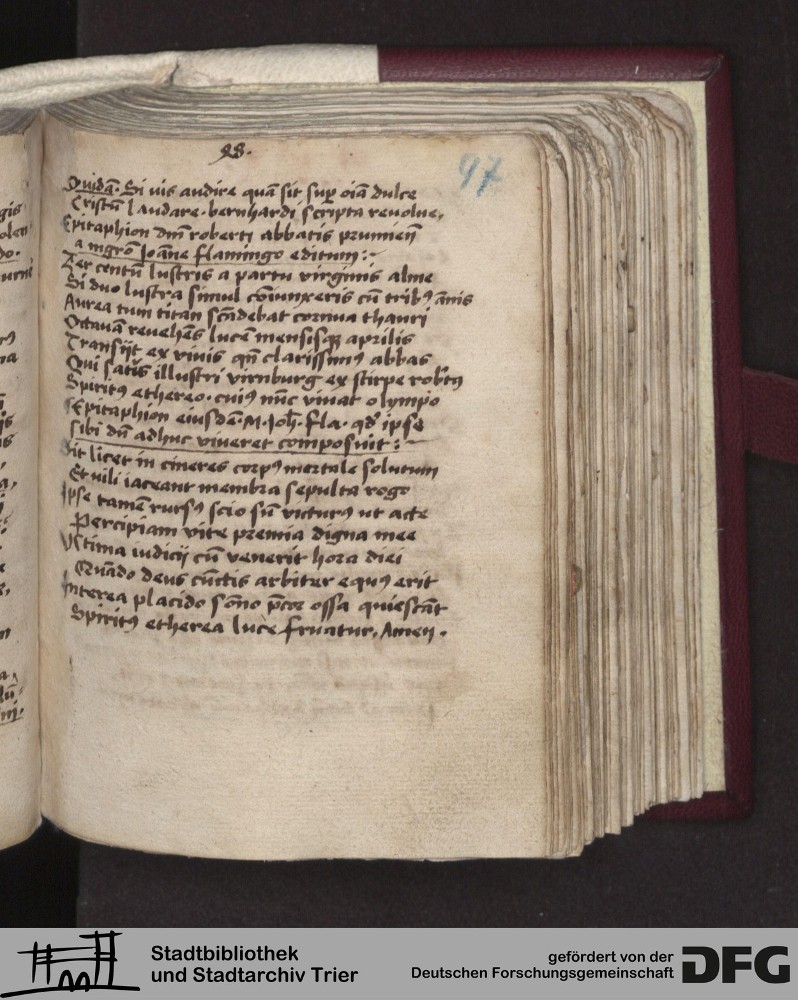 98.
97
Quidā. Si vis audire quā sit sup oīa dulce
Cristū laudare. bernhardi scripta reuolue,
Epitaphion dm̄ roberti abbatis prumieñ
a mgro Joāne flamingo editum:-
Ter centū lustris a partu virginis alme
Si duo lustra simul cōiunxeris cū tribꝰ ānis
Aurea tum titan scādebat cornua thauri
Octauā reuehēs lucē mensisqꝫ aprilis
Transijt ex viuis qn̄ clarissimꝰ abbas
Qui satꝰ illustri virnburg ex stirpe robtꝰ
Spiritꝰ ethereo. cuiꝰ nūc viuat olympo
Epitaphion eiusdē. M. Joh̄. Fla. qd ipse
sibi dū adhuc viueret composuit:-
Sit licet in cineres corpꝰ mortale solutum
Et vili iaceant membra sepulta rogo
Ipse tamē rursꝰ scio sū victurꝰ ut acte
Percipiam vite premia digna mee
Vltima iudicij cū venerit hora diei
Quādo deus cūctis arbiter equꝰ erit
Interea placido sōno p̄cor ossa quiescāt
Spiritꝰ etherea luce fruatur. Ameñ.
gis
do.
Stadtbibliothek
und Stadtarchiv Trier
gefördert von der
Deutschen Forschungsgemeinschaft
DFG